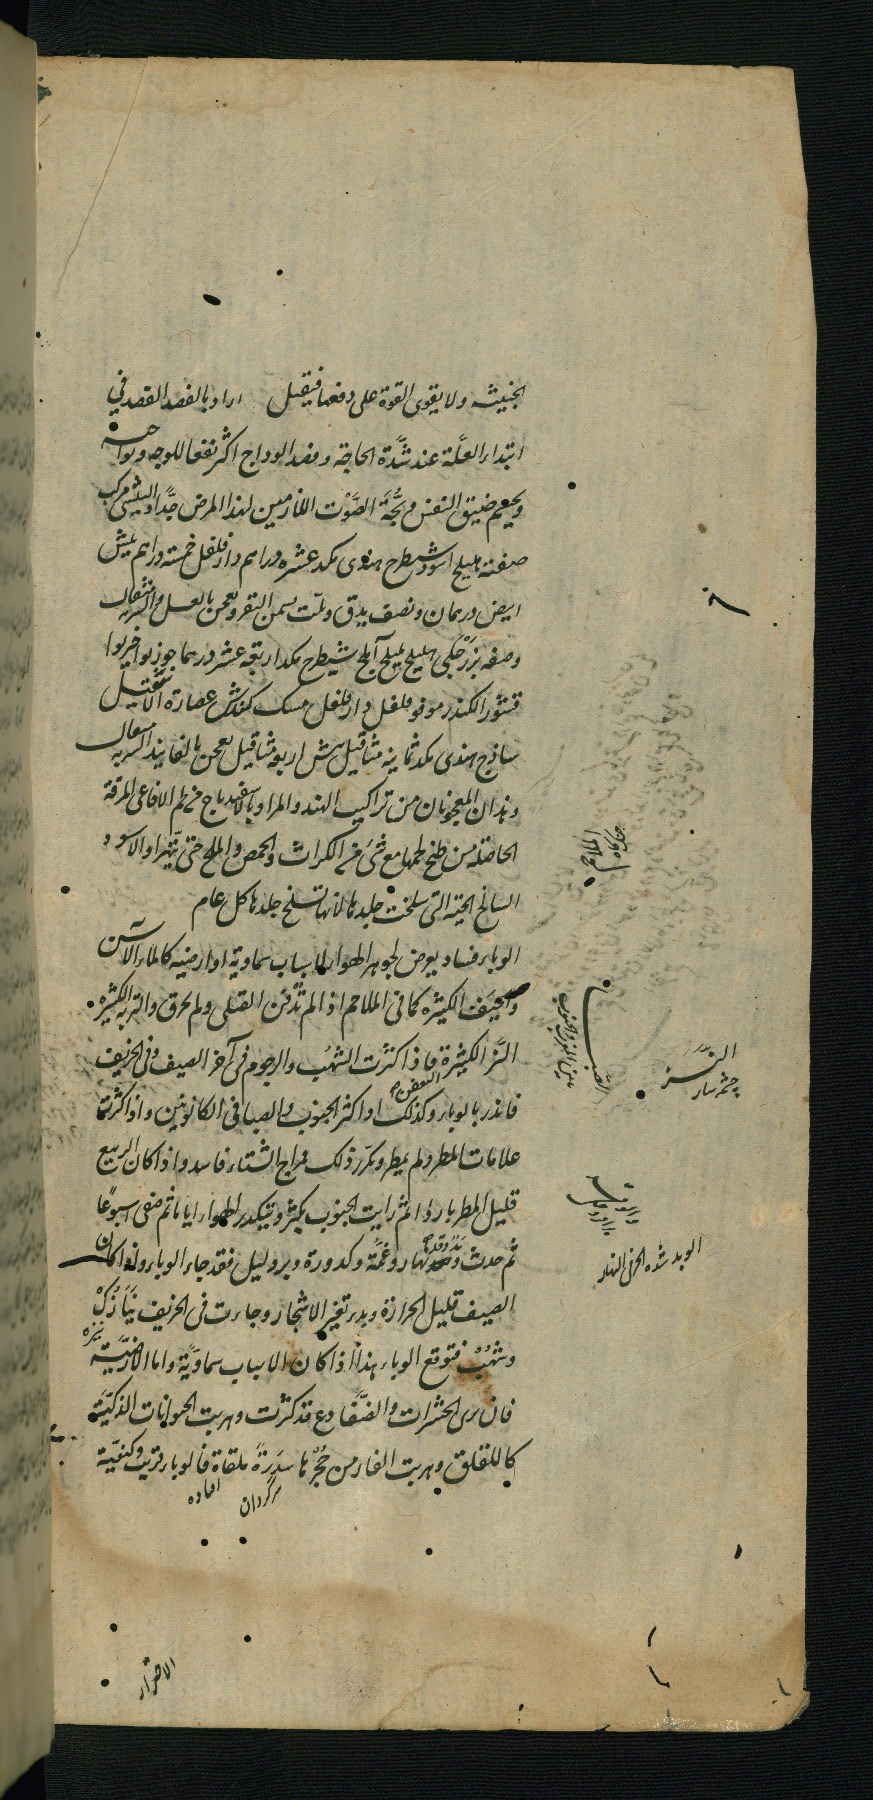 الخبيثه ولا يقوى القوة على دفعها فيقتل اراد بالفصد الفصد في
ابتداء العلّة عند شدّة الحاجة وفصد الوداج اكثر نفعا للوجه ونواحيه
ويعمهم ضيق النفس وبُحَّة الصَّوْت اللازمين لهذا المرض جدًّا والبيش مركب
صفته هليلج اسود شيطرج هندى مكد عشره دراهم دارفلفل خمسة دراهم بيش
ابيض درهمان ونصف يدق ويلت بسمن البقر ويعجن بالعسل والشربه مثقال
وصفه بزرجلى هليلج بليلج آملج شيطرج مكد اربعة عشر درهما جوزبوا خيربوا
قشور الكندر مو فو فلفل دارفلفل مسك كندش عصارة الافسنتين
ساذج هندى مكد ثمانية مثاقيل بيش اربعة مثاقيل يعجن بالفانيذ الشربه مثقال
وهذان المعجونان من تراكيب الهند والمراد بالاسفيدباج من لحم الافاعى المرقة
الحاصلة من طبخ لحمها مع شئ من الكراث والحمص والملح حتى يتهرا والاسود
السالخ الحيّة التى سلخت جلدها لانها تسلخ جلدها كل عام
الوباء فساد يعرض لجوهر الهواء لاسباب سماوية او ارضيه كالماء الآسن
والجيَف الكثيره كما فى الملاحم اذا لم تُدفن القتلى ولم تحرق والتربه الكثيره
النَّز الكثيرة فاذا كثرت الشهُب والرجوم فى آخر الصيف وفى الخريف
فانذر بالوباء وكذلك اذا كثر الجنوب والصبا فى الكانونين واذا كثرت
علامات المطر ولم يمطر وتكرّر ذلك فمزاج الشتاء فاسد واذا كان الربيع
قليل المطر باردا ثم رايت الجنوب يكثر ويتكدر الهواء اياما ثم صفى اسبوعًا
ثم حدث نهار وغمّة وكدورة وبرد ليل فقد جاء الوباء واذا كان
الصيف قليل الحرارة وبدء تغير الاشجار وجاءت فى الخريف نيَازك
نيزه
وشهُبٌ فتوقع الوباء هذا اذا كان الاسباب سماويَّة واما الارضيّة
فان يرى الحشرات والضّفادع قد كثرت وهربت الحيوانات الذكيّة
كاللقلق وهربت الفار من حُجْرها سَدِرَةً ملقاة فالوباء قريب وكيفيّة
سرگردان
افتاده
الصَّبا
النَّز
چشمه سار
الومد شدة الحر فى النهار
الاضرار